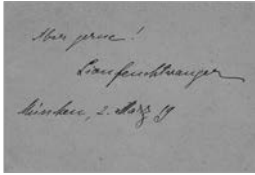 Aber gerne!
Lion Feuchtwanger
München, 2. März 19